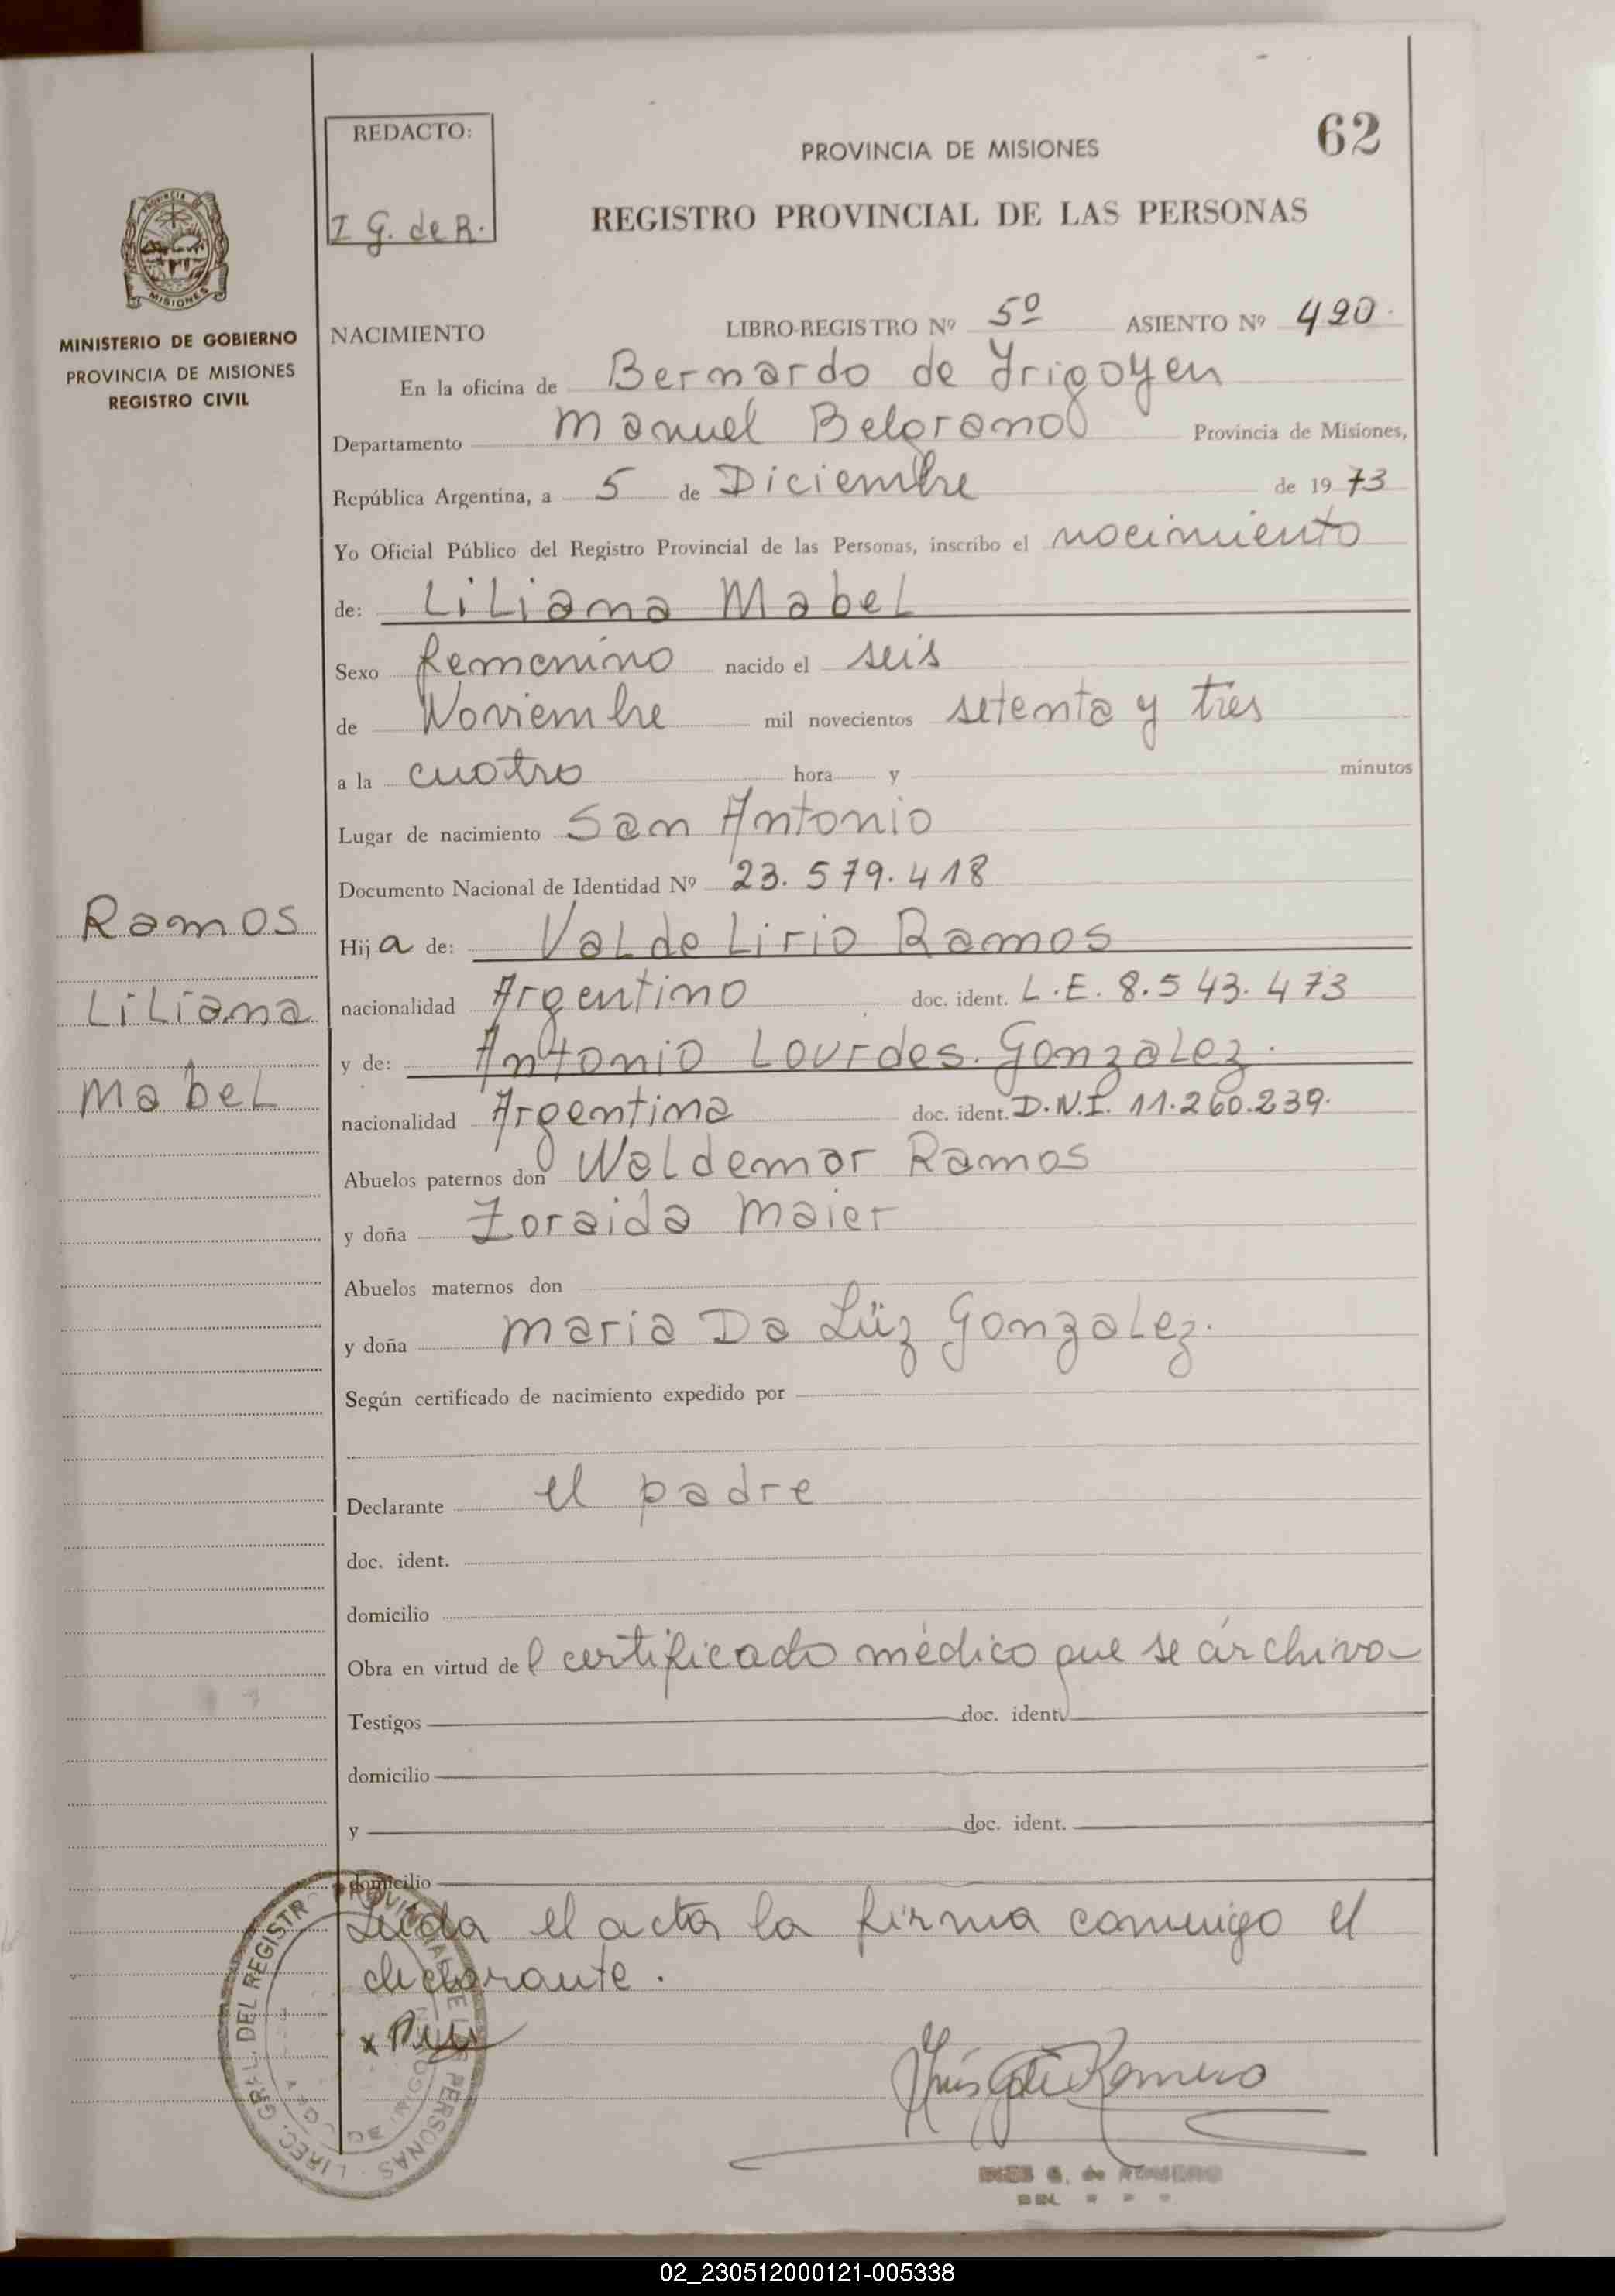 REDACTO:
I G. de R.
62
PROVINCIA DE MISIONES
REGISTRO PROVINCIAL DE LAS PERSONAS
PROVINCIA DE
MISIONES
MINISTERIO DE GOBIERNO
PROVINCIA DE MISIONES
REGISTRO CIVIL
NACIMIENTO LIBRO-REGISTRO Nº 5º ASIENTO Nº 490.
En la oficina de Bernardo de Yrigoyen
Departamento Manuel Belgrano Provincia de Misiones,
República Argentina, a 5 de Diciembre de 1973
Yo Oficial Público del Registro Provincial de las Personas, inscribo el nacimiento
de: Liliana Mabel
Sexo femenino nacido el seis
de Noviembre mil novecientos setenta y tres
a la cuatro hora y minutos
Lugar de nacimiento San Antonio
Documento Nacional de Identidad Nº 23.579.418
Ramos
Liliana
Mabel
Hija de: Valdelirio Ramos
nacionalidad Argentino doc. ident. L.E. 8.543.473
y de: Antonio Lourdes. Gonzalez.
nacionalidad Argentina doc. ident. D.N.I. 11.260.239.
Abuelos paternos don Waldemar Ramos
y doña Zoraida Maier
Abuelos maternos don
y doña Maria Da Lüz Gonzalez.
Según certificado de nacimiento expedido por
Declarante el padre
doc. ident.
domicilio
Obra en virtud del certificado médico que se archiva
Testigos doc. ident.
domicilio
y doc. ident.
domicilio
Leida el acta la firma conmigo el
declarante.
x
DIREC. GRAL. DEL REGISTRO PROVINCIAL DE LAS PERSONAS
Inés G de Romero
INES G. de ROMERO
02_230512000121-005338